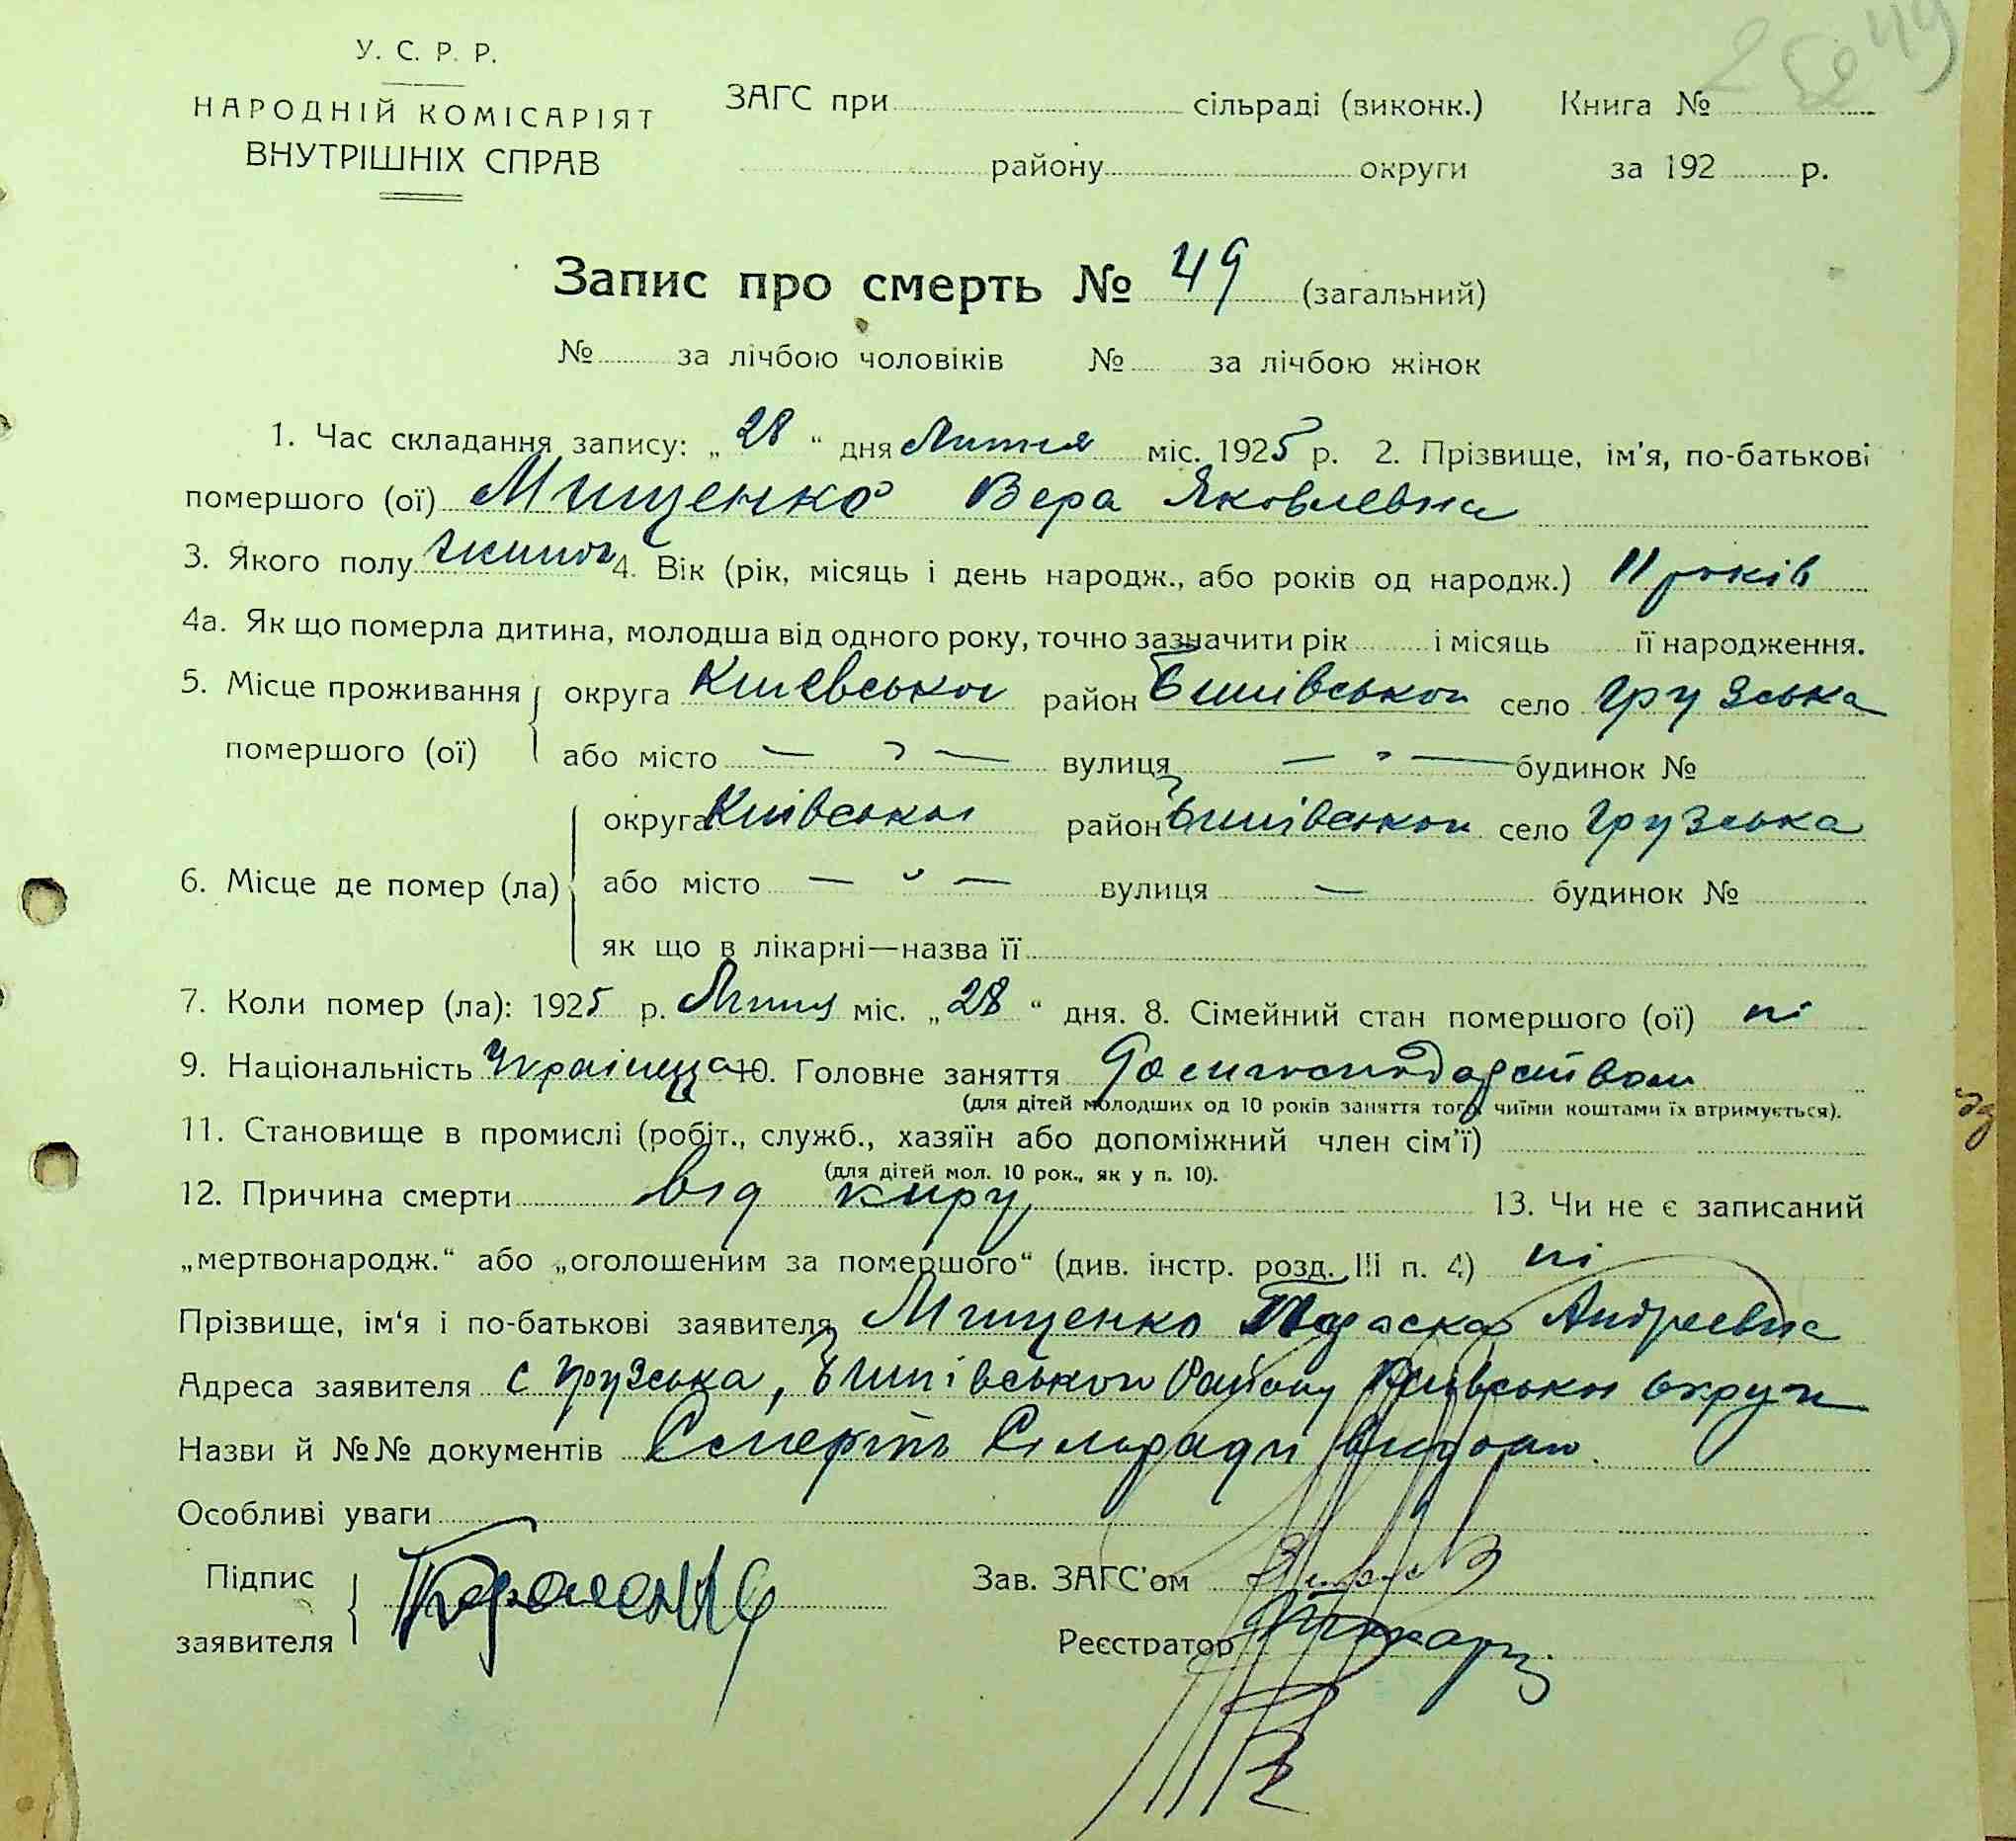 2 52 49
У. С. Р. Р.
НАРОДНІЙ КОМІСАРІЯТ
ВНУТРІШНІХ СПРАВ
ЗАГС при сільраді (виконк.) Книга №
району округи за 192 р.
Запис про смерть № 49 (загальний)
№ за лічбою чоловіків № за лічбою жінок
1. Час складання запису: „ 28 “ дня міс. 1925 р. 2. Прізвище, ім'я, по-батькові
помершого (ої) Мищенко Вера Яковлевна
3. Якого полу 4. Вік (рік, місяць і день народж., або років од народж.) 11 років
4а. Як що померла дитина, молодша від одного року, точно зазначити рік і місяць її народження.
5. Місце проживання округа Киевської район село Грузська
помершого (ої) або місто — " — вулиця — " — будинок №
округа Київської район село Грузська
6. Місце де помер (ла) або місто — " — вулиця — будинок №
як що в лікарні—назва її
7. Коли помер (ла): 1925 р. міс. „ 28 “ дня. 8. Сімейний стан помершого (ої) ні
9. Національність Украінца 10. Головне заняття
(для дітей молодших од 10 років заняття того, чиїми коштами їх втримується).
11. Становище в промислі (робіт., служб., хазяїн або допоміжний член сім'ї)
(для дітей мол. 10 рок., як у п. 10).
12. Причина смерти від киру 13. Чи не є записаний
„мертвонародж.“ або „оголошеним за помершого“ (див. інстр. розд. III п. 4) ні
Прізвище, ім'я і по-батькові заявителя Мищенко Параска Андреевна
Адреса заявителя с Грузська, району Київської округи
Назви й №№ документів Сільради
Особливі уваги
Підпис Зав. ЗАГС'ом
заявителя Реєстратор